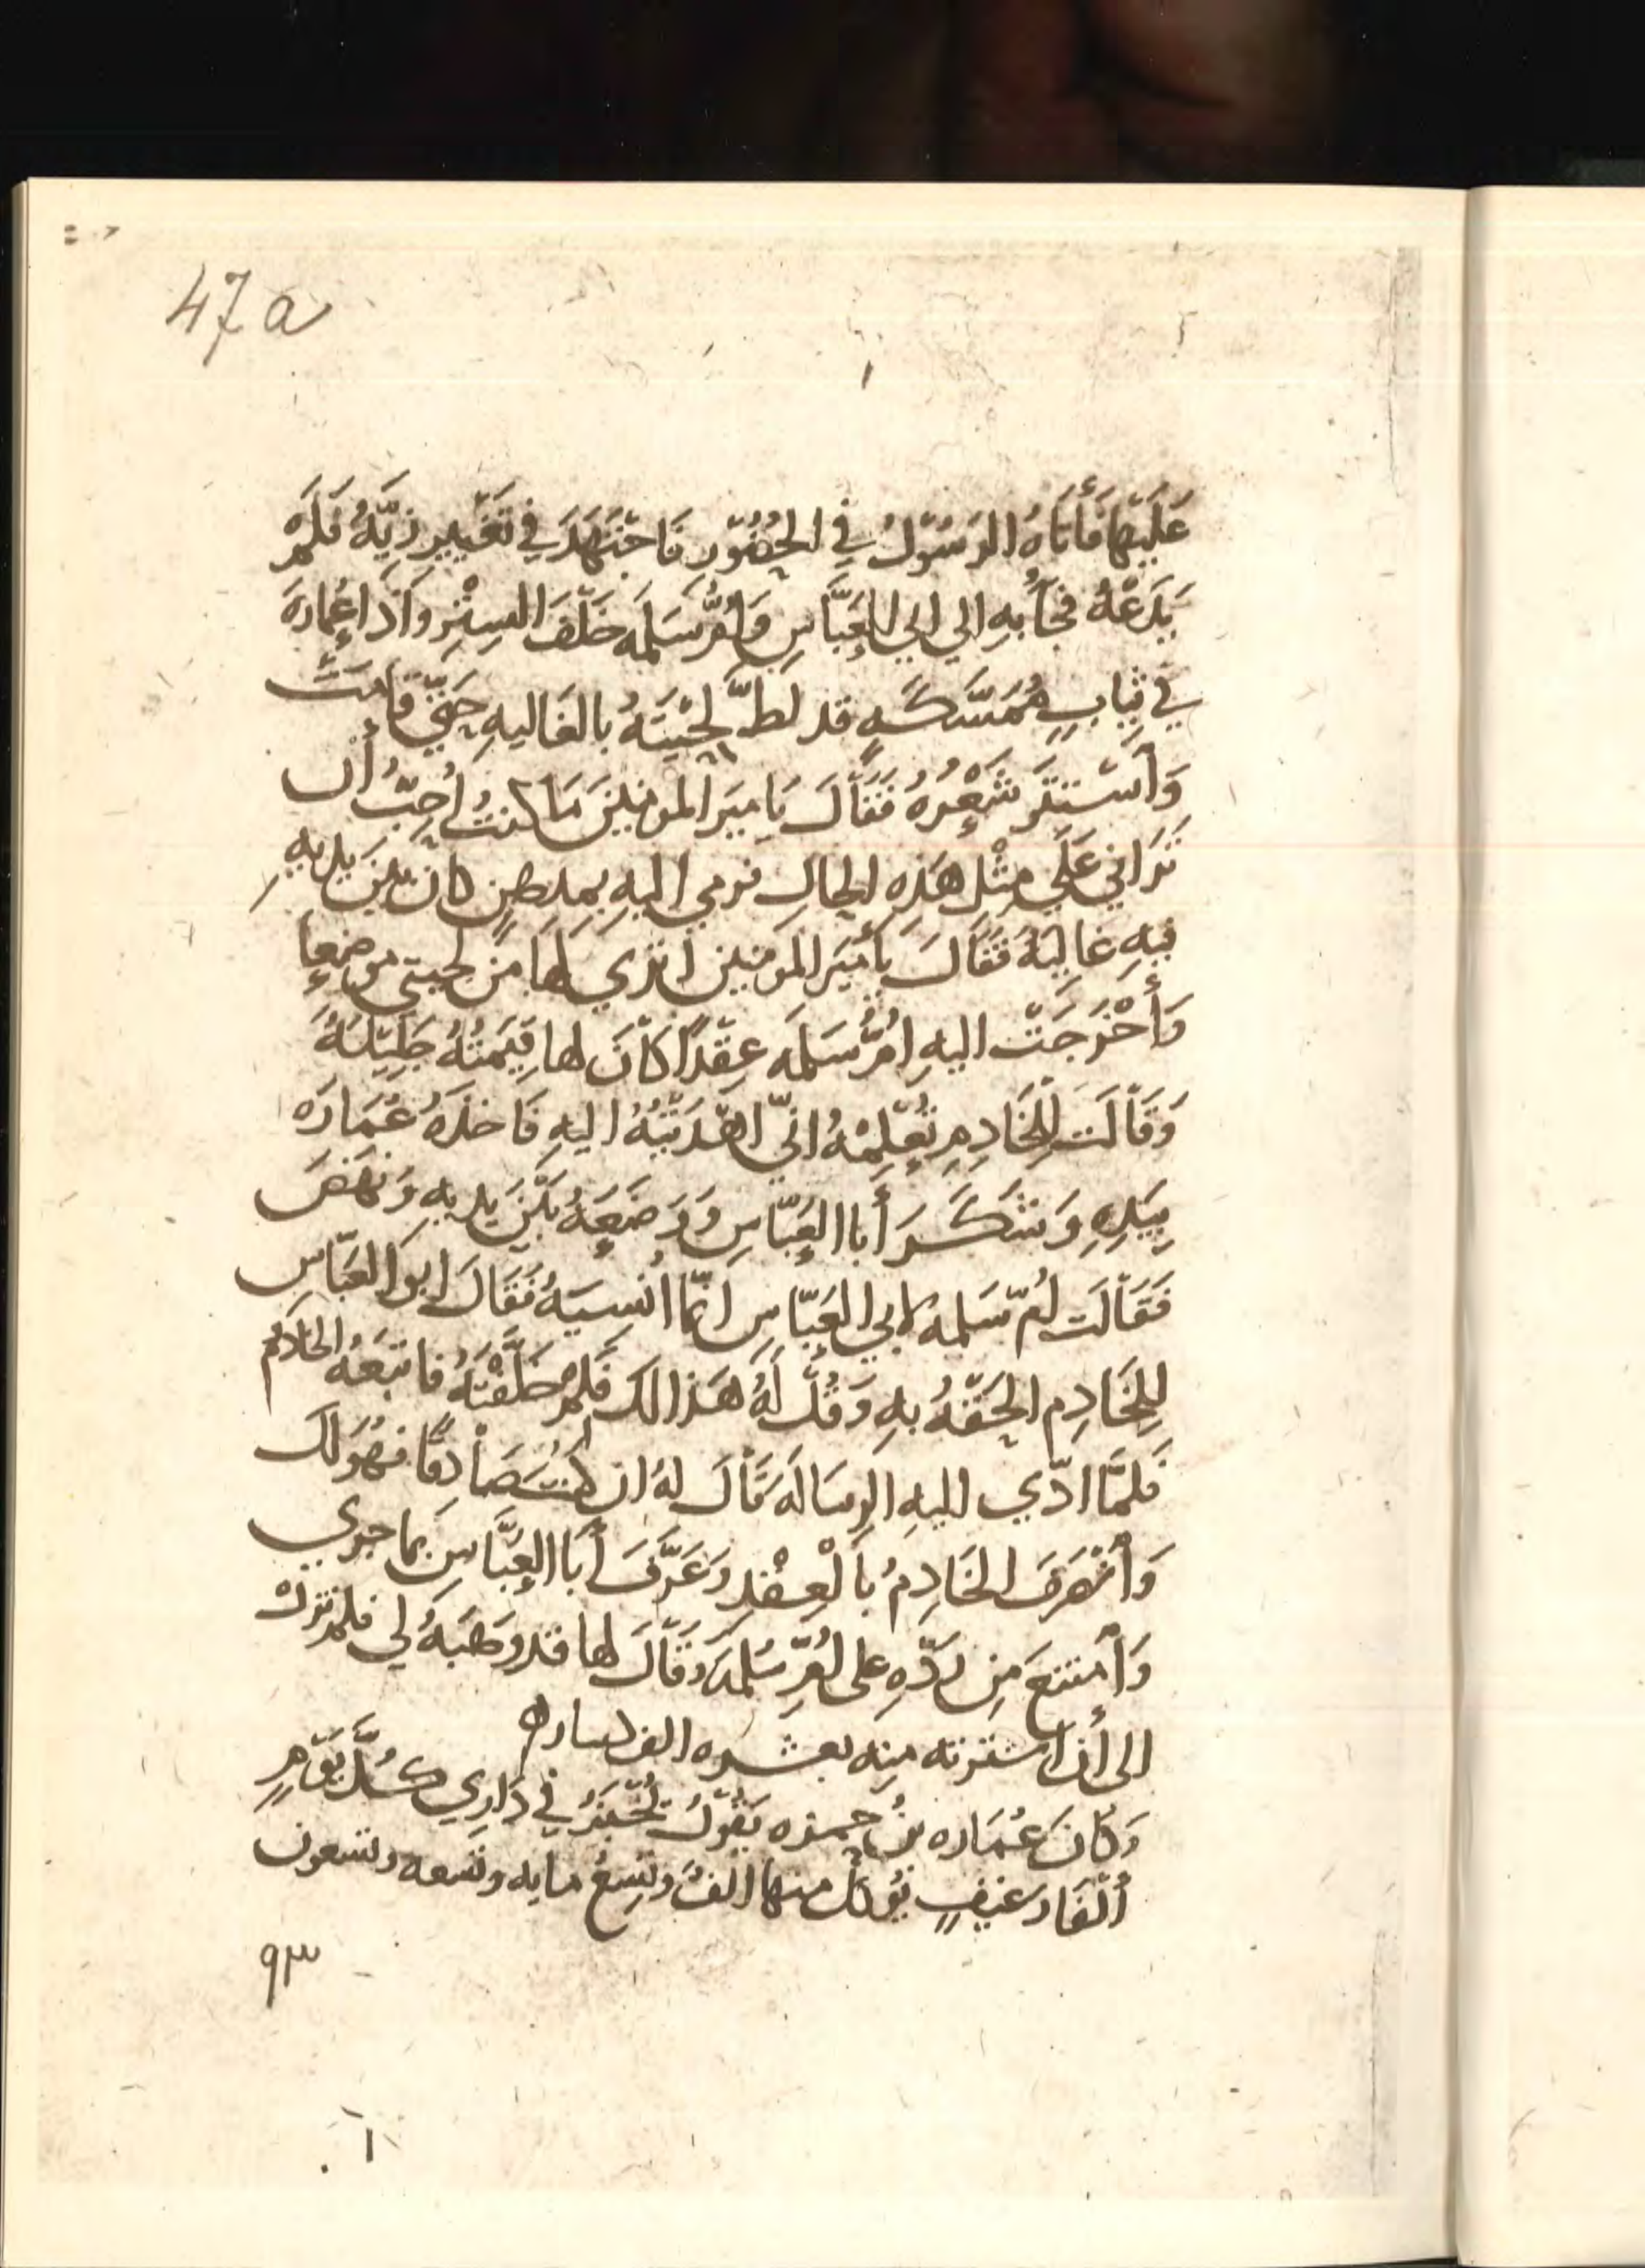 47a
عَلَيْهَا فَأَتَاهُ الرَسُوْلُ فِي الحُضُوْر فَاجْتَهَدَ فِي تَغْيير زِيِّهُ فَلَمْ
يَدَعْهُ فجآ بهِ الي ابي العَبَّاسِ وَأُمُّ سَلَمه خَلْفَ السِتْرِ واذا عُمارة
في ثِيابٍ مُمَسَّكَةٍ قد لطَّ لِحْيَتَهُ بالغَاليهِ حَتّي قَامَتْ
وَأسْتتَرَ شَعْرُهُ فَقَالَ يَاميَر المومنِينَ مَا كنتُ أُحِبُّ أن
تَرَاني عَلَي مِثْل هَذِهِ الحَالِ فرمي اليهِ بمدهنٍ كان بَيْنَ يديهِ
فيهِ غَالِيَهُ فَقَالَ يَأميَر المومنين اتري لها من لحيتي موضعا
وَأَخْرَجَتْ اليهِ اُمُّ سَلمَه عِقْدًا كاَنَ لها قِيمَتُهُ جَلِيْلَهُ
وَقَالَتْ لِلْخَادِمِ تُعْلِمْهُ انّي اهْدَيْتُهُ اليهِ فَاخذَهُ عُمَارَه
بِيَدِهِ وَشَكَرَ أبا العَبّاسِ وَوَضَعَهُ بَيْنَ يديهِ وَنَهَضَ
فَقَالَت اُمّ سَلمه لابي العَبّاسِ انّما اُنسيَهُ فَقَالَ ابوا العَبّاس
لِلخَادِم الحَقْهُ بهِ وَقُلْ لَهُ هَذا لك فَلِمَ خَلَّفْتَهُ فاتبَعَهُ الخَادمُ
فَلمَّا ادّي اليهِ الرِسَالَه قَالَ لهُ ان كنتَ صَادِقًا فهُوَ لَك
وَأنْصَرَفَ الخَادِمُ بالْعِقْدِ وَعَرَّفَ أبَا العبَّاسِ بما جري
وَأمتنعَ مِن رَدّهِ على اُمِّ سَلمَه وَقَالَ لها قد وَهَبَهُ لي فلم تزَلْ
الى أن اشترته منه بعشره الف دينار ه
وَكَانَ عُمَاره بنُ حمزه يَقُوْلُ يُخْبَزُ في دَارِي كُلَّ يَوْمٍ
أَلْفَا رغيفٍ يُؤكل منها الفٌ وتِسْعُ مايه وتسعه وتسعون
٩٣